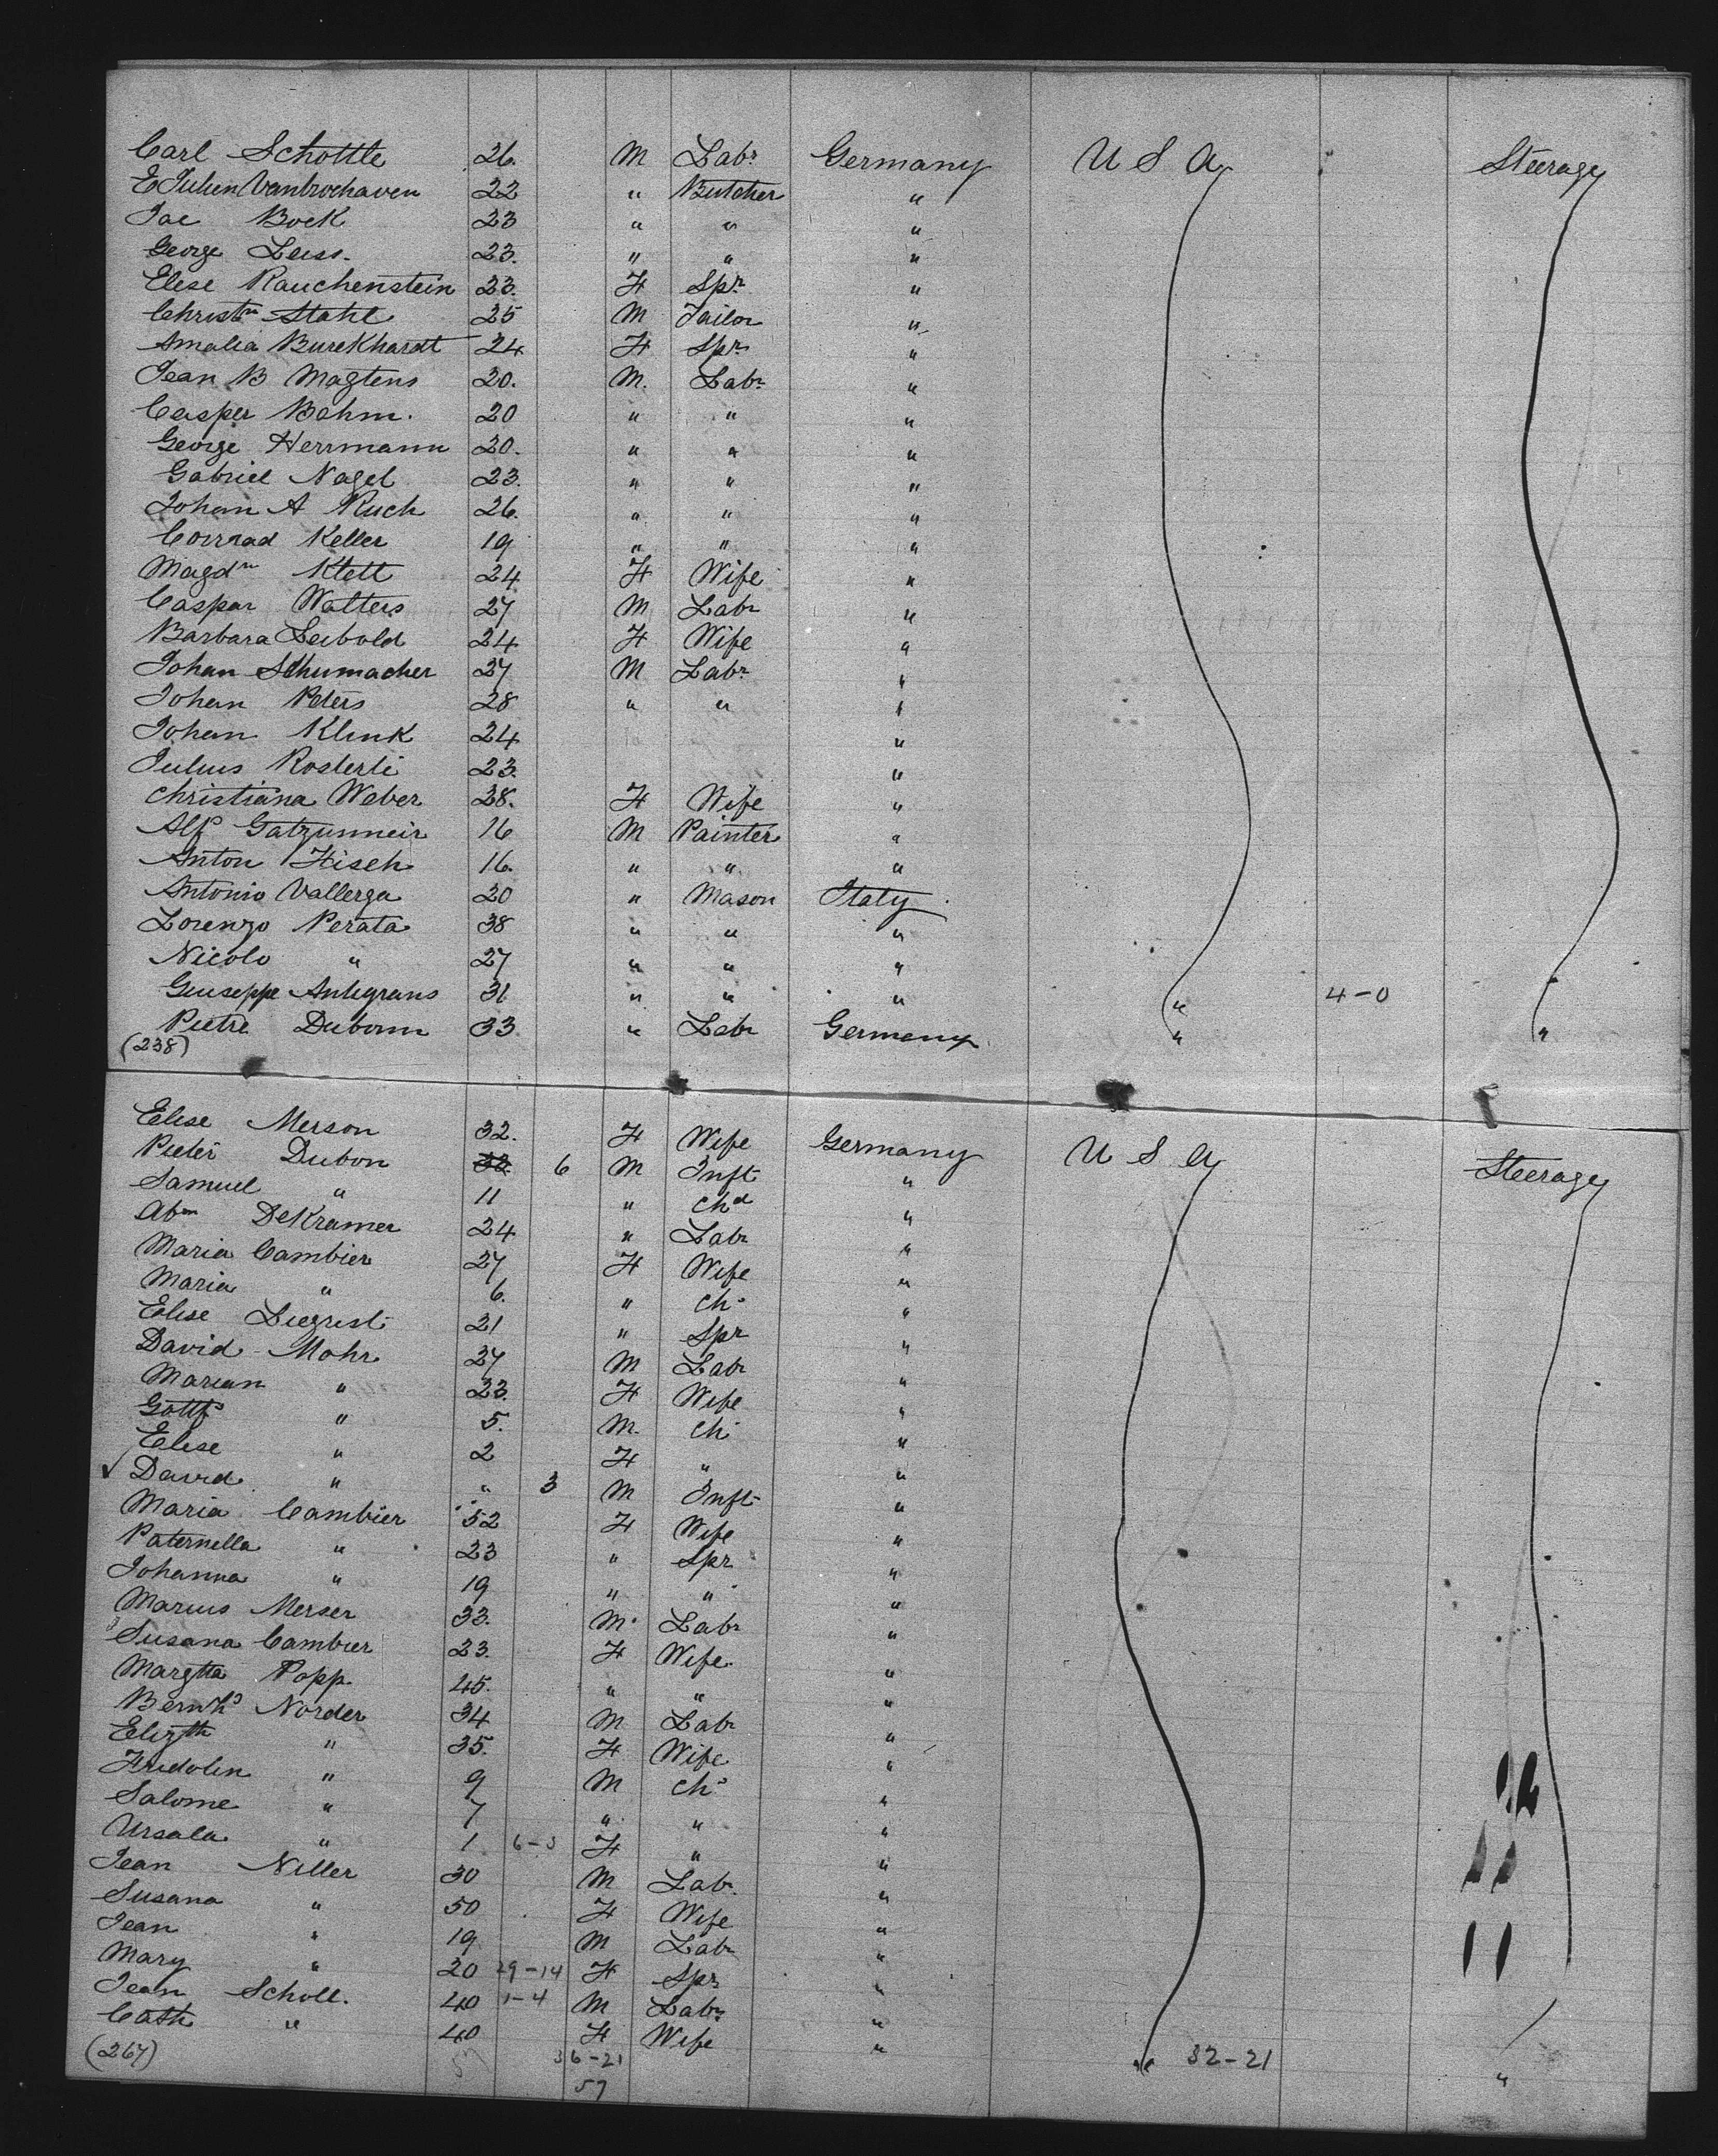 Carl Schottle 26. M Labr Germany U S A Steerage
E Julien Vanbrochaven 22 " Butcher "
Jac Bock 23 " " "
George Leiss. 23. " " "
Elise Rauchenstein 23. F Spr "
Christn Stahl 25 M Tailor "
Amalia Burckhardt 24 F Spr "
Jean B Magtens 20. M. Labr "
Casper Bohm. 20 " " "
George Herrmann 20. " " "
Gabriel Nagel 23. " " "
Johan A Ruch 26. " " "
Conrad Keller 19 " " "
Magdn Klett 24 F Wife "
Caspar Walters 27 M Labr "
Barbara Leibold 24 F Wife "
Johan Schumacher 27 M Labr "
Johan Peters 28 " " "
Johan Klink 24 "
Julius Rosterli 23. "
Christiana Weber 28. F Wife "
Alf Gatzunmeir 16 M Painter "
Anton Fisch 16. " " "
Antonio Vallerga 20 " Mason Italy
Lorenzo Perata 38 " " "
Nicolo " 27 " " "
Giuseppe Antegrans 31 " " " " 4-0
Pietre Duborn 33 " Labr Germany " "
(238)
Elise Merson 32. F Wife Germany U S A Steerage
Pieter Dubon 6 M Inft "
Samuel " 11 " Chd "
Abm DeKramer 24 " Labr "
Maria Cambier 27 F Wife "
Maria " 6. " Ch "
Elise Liegrist 21 " Spr "
David Mohr 27 M Labr "
Marian " 23. F Wife "
Gottf " 5. M. Ch "
Elise " 2 F " "
✓ David " " 3 M Inft "
Maria Cambier 52 F Wife "
Paternella " 23 " Spr "
Johanna " 19 " " "
Marius Merser 33. M. Labr "
Susana Cambier 23. F Wife "
Margtta Popp 45. " " "
Bernhd Norder 34 M Labr "
Elizth " 35. F Wife "
Fridolin " 9 M Ch "
Salome " 7 " " "
Ursala " 1 6-3 F " "
Jean Niller 30 M Lab. "
Susana " 50 F Wife "
Jean " 19 M Labr "
Mary " 20 29-14 F Spr "
Jean Scholl. 40 1-4 M Labr "
Cath " 40 F Wife " " 32-21 "
(267) 57 36-21
57